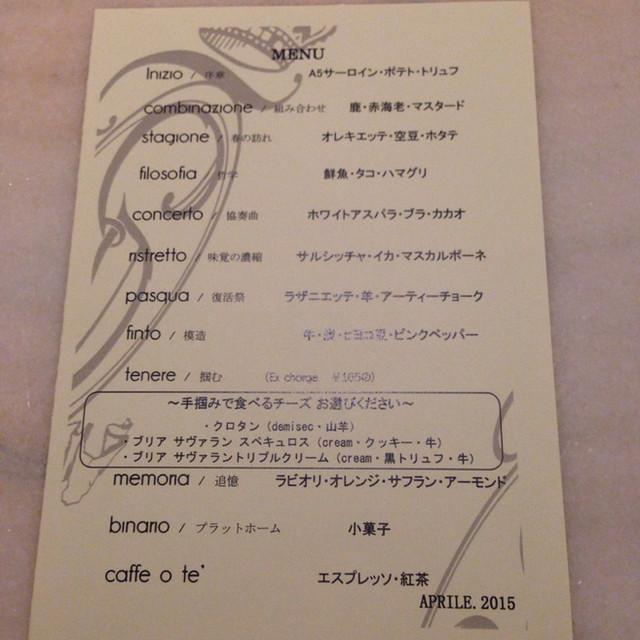 MENU
Inizio / 序章 A5サーロイン・ポテト・トリュフ
combinazione / 組み合わせ 鹿・赤海老・マスタード
stagione / 春の訪れ オレキエッテ・空豆・ホタテ
filosofia / 哲学 鮮魚・タコ・ハマグリ
concerto / 協奏曲 ホワイトアスパラ・ブラ・カカオ
ristretto / 味覚の濃縮 サルシッチャ・イカ・マスカルポーネ
pasqua / 復活祭 ラザニエッテ・羊・アーティーチョーク
finto / 模造 牛・炭・ヒヨコ豆・ピンクペッパー
tenere / 掴む (Ex charge ¥1650)
～手掴みで食べるチーズ お選びください～
・クロタン (demisec・山羊)
・ブリア サヴァラン スペキュロス (cream・クッキー・牛)
・ブリア サヴァラントリプルクリーム (cream・黒トリュフ・牛)
memoria / 追憶 ラビオリ・オレンジ・サフラン・アーモンド
binario / プラットホーム 小菓子
caffe o te' エスプレッソ・紅茶
APRILE.2015